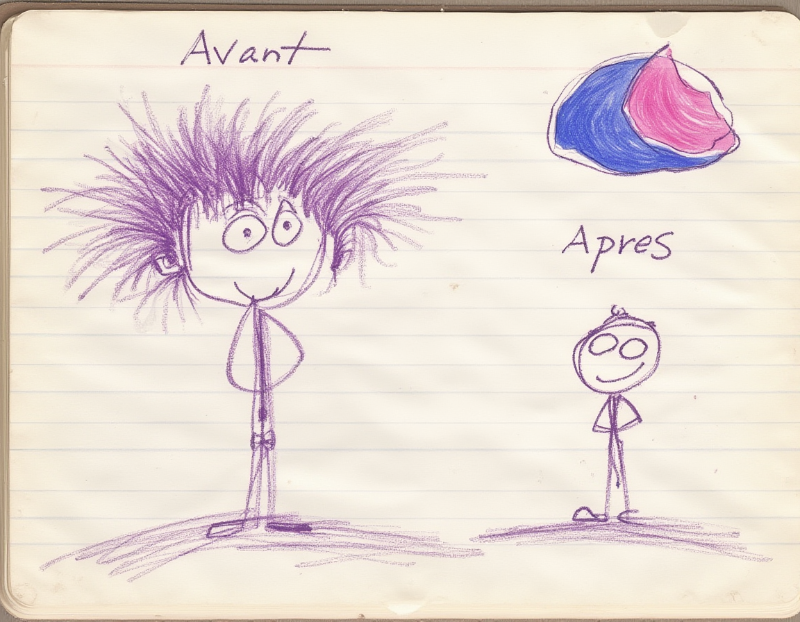 Avant
Apres